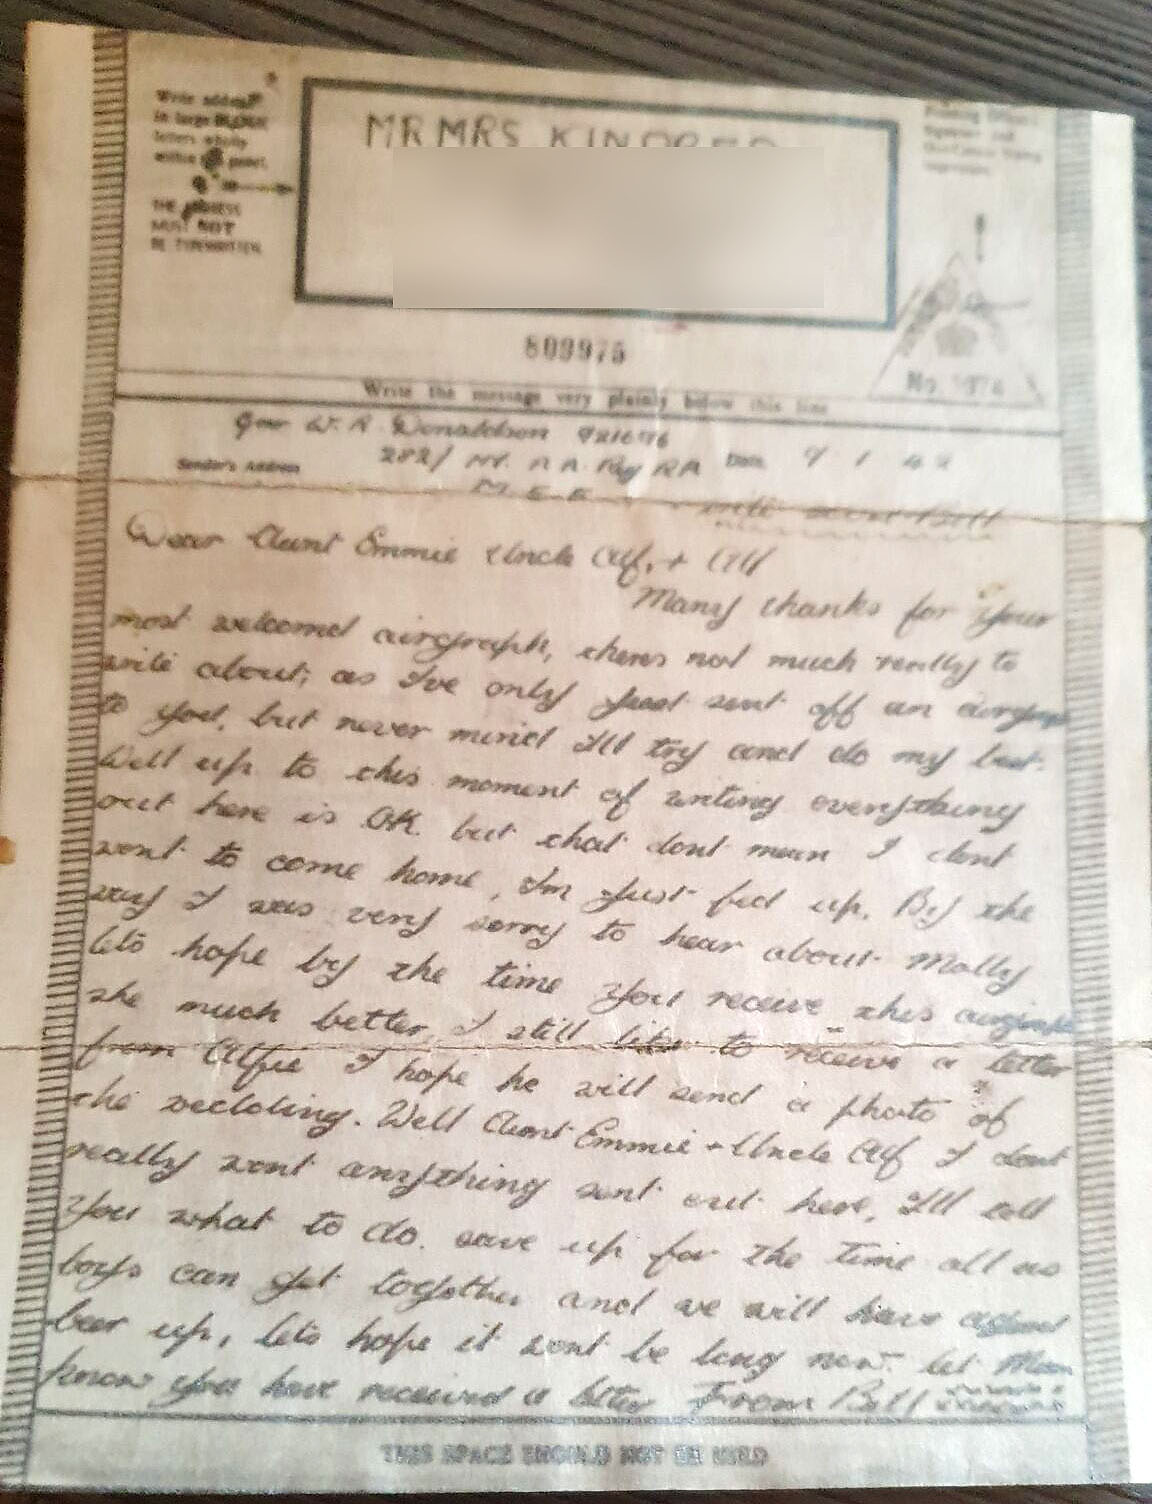 Write address
in large BLOCK
letters wholly
within panel.
THE ADDRESS
MUST NOT
BE TYPEWRITTEN.
MR MRS KINDRED
809975
No.
Write the message very plainly below this line
W. R. Donaldson
Sender's Address
RA Date 9 1 42
M E F
Dear Aunt Emmie Uncle Alf, + Alf
Many thanks for your
most welcomed airgraph, theres not much really to
write about; as I've only just sent off an airgraph
to you, but never mind I'll try and do my best.
Well up to this moment of writing everything
out here is OK. but that dont mean I dont
want to come home, I'm just fed up. By the
way I was very sorry to hear about Molly
lets hope by the time you receive this airgraph
she much better, I still like to receive a letter
from Alfie I hope he will send a photo of
the wedding. Well Aunt Emmie + Uncle Alf I dont
really want anything sent out here, I'll tell
you what to do. save up for the time all us
boys can get together and we will have a good
beer up, lets hope it wont be long now. let Mum
know you have received a letter From Bill
THIS SPACE SHOULD NOT BE USED